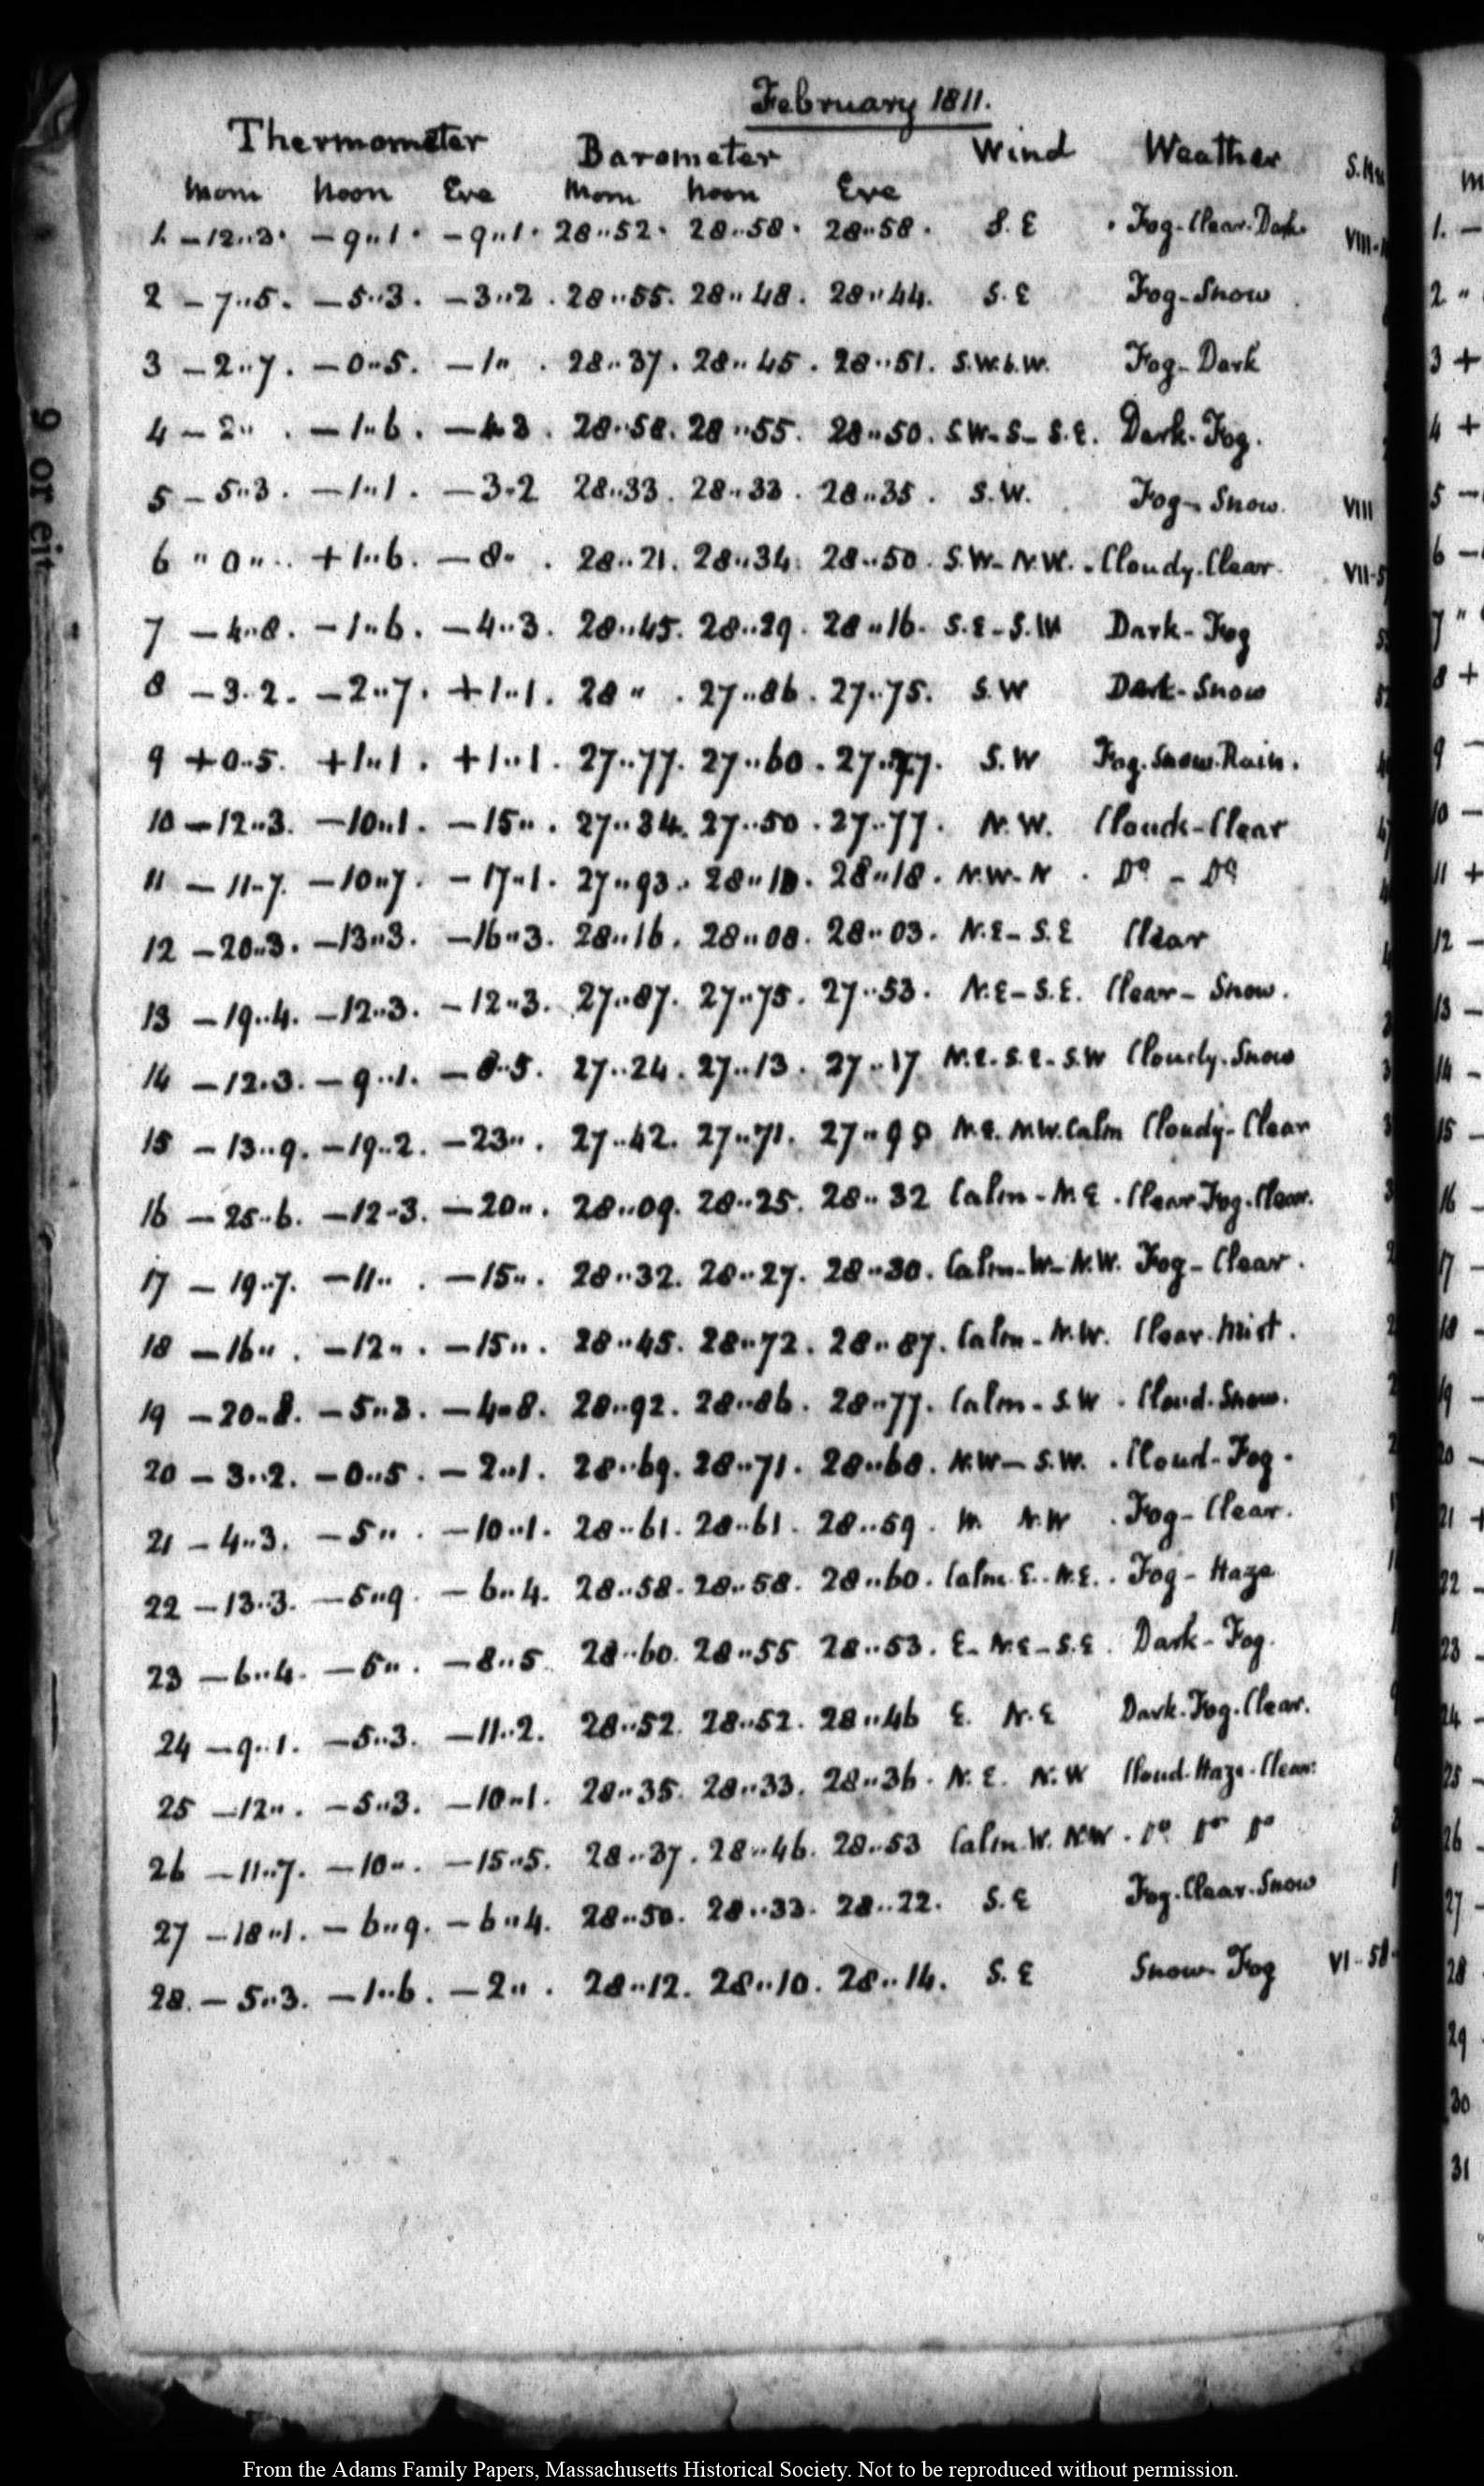 February 1811.
Thermometer Barometer Wind Weather
Morn Noon Eve Morn Noon Eve
1. -12..3. -9..1. -9..1. 28..52. 28..58. 28..58. S.E. Fog-Clear-Dark VIII
2 -7..5. -5..3. -3..2. 28..55. 28..48. 28..44. S.E Fog-Snow
3 -2..7. -0..5. -1.. . 28..37. 28..45. 28..51. S.W.b.W. Fog-Dark
4 -2.. . -1..6. 28..58. 28..55. 28..50. S.W-S-S.E. Dark-Fog.
5 -5..3. -1..1. -3..2 28..33. 28..33. 28..35. S.W. Fog-Snow. VIII
6 " 0".. +1..6. -8.. . 28..21. 28..34. 28..50. S.W-N.W. Cloudy.Clear.
7 -4..8. -1..6. -4..3. 28..45. 28..29. 28..16. S.E-S.W Dark-Fog
8 -3..2. -2..7. +1..1. 28 " . 27..86. 27..75. S.W Dark-Snow
9 +0..5. +1..1. +1..1. 27..77. 27..60. S.W Fog.Snow.Rain.
10 -12..3. -10..1. -15.. . 27..34. 27..50. 27..77. N.W. Cloud-Clear
11 -11..7. -10..7. -17..1. 27..93. 28..18. N.W-N. Do - Do
12 -20..3. -13..3. -16..3. 28..16. 28..08. 28..03. N.E-S.E Clear
13 -19..4. -12..3. -12..3. 27..87. 27..75. 27..53. N.E-S.E. Clear-Snow.
14 -12..3. -9..1. -8..5. 27..24. 27..13. 27..17 N.E.S.E-S.W Cloudy.Snow
15 -13..9. -19..2. -23.. . 27..42. 27..71. N.E. N.W.Calm Cloudy-Clear
16 -25..6. -12..3. -20.. . 28..09. 28..25. 28..32 Calm-N.E. Clear Fog.Clear.
17 -19..7. -11.. . -15.. . 28..32. 28..27. 28..30. Calm-W-N.W. Fog-Clear.
18 -16.. . -12.. . -15.. . 28..45. 28..72. 28..87. Calm-N.W. Clear.Mist.
19 -20..8. -5..3. -4..8. 28..92. 28..86. 28..77. Calm-S.W. Cloud.Snow.
20 -3..2. -0..5. -2..1. 28..69. 28..71. 28..68. N.W-S.W. Cloud-Fog.
21 -4..3. -5.. . -10..1. 28..61. 28..61. 28..59. W. N.W. Fog-Clear.
22 -13..3. -5..9. -6..4. 28..58. 28..58. 28..60. Calm.E..N.E.. Fog-Haze
23 -6..4. -5.. . -8..5. 28..60. 28..55 28..53. E-N.E-S.E. Dark-Fog.
24 -9..1. -5..3. -11..2. 28..52. 28..52. 28..46 E. N.E Dark.Fog.Clear.
25 -12.. . -5..3. -10..1. 28..35. 28..33. 28..36. N.E. N.W Cloud.Haze.Clear.
26 -11..7. -10.. . -15..5. 28..37. 28..46. 28..53 Calm.W. N.W. Do Do Do
27 -18..1. -6..9. -6..4. 28..50. 28..33. 28..22. S.E Fog.Clear.Snow
28. -5..3. -1..6. -2.. . 28..12. 28..10. 28..14. S.E Snow-Fog VI..58
From the Adams Family Papers, Massachusetts Historical Society. Not to be reproduced without permission.